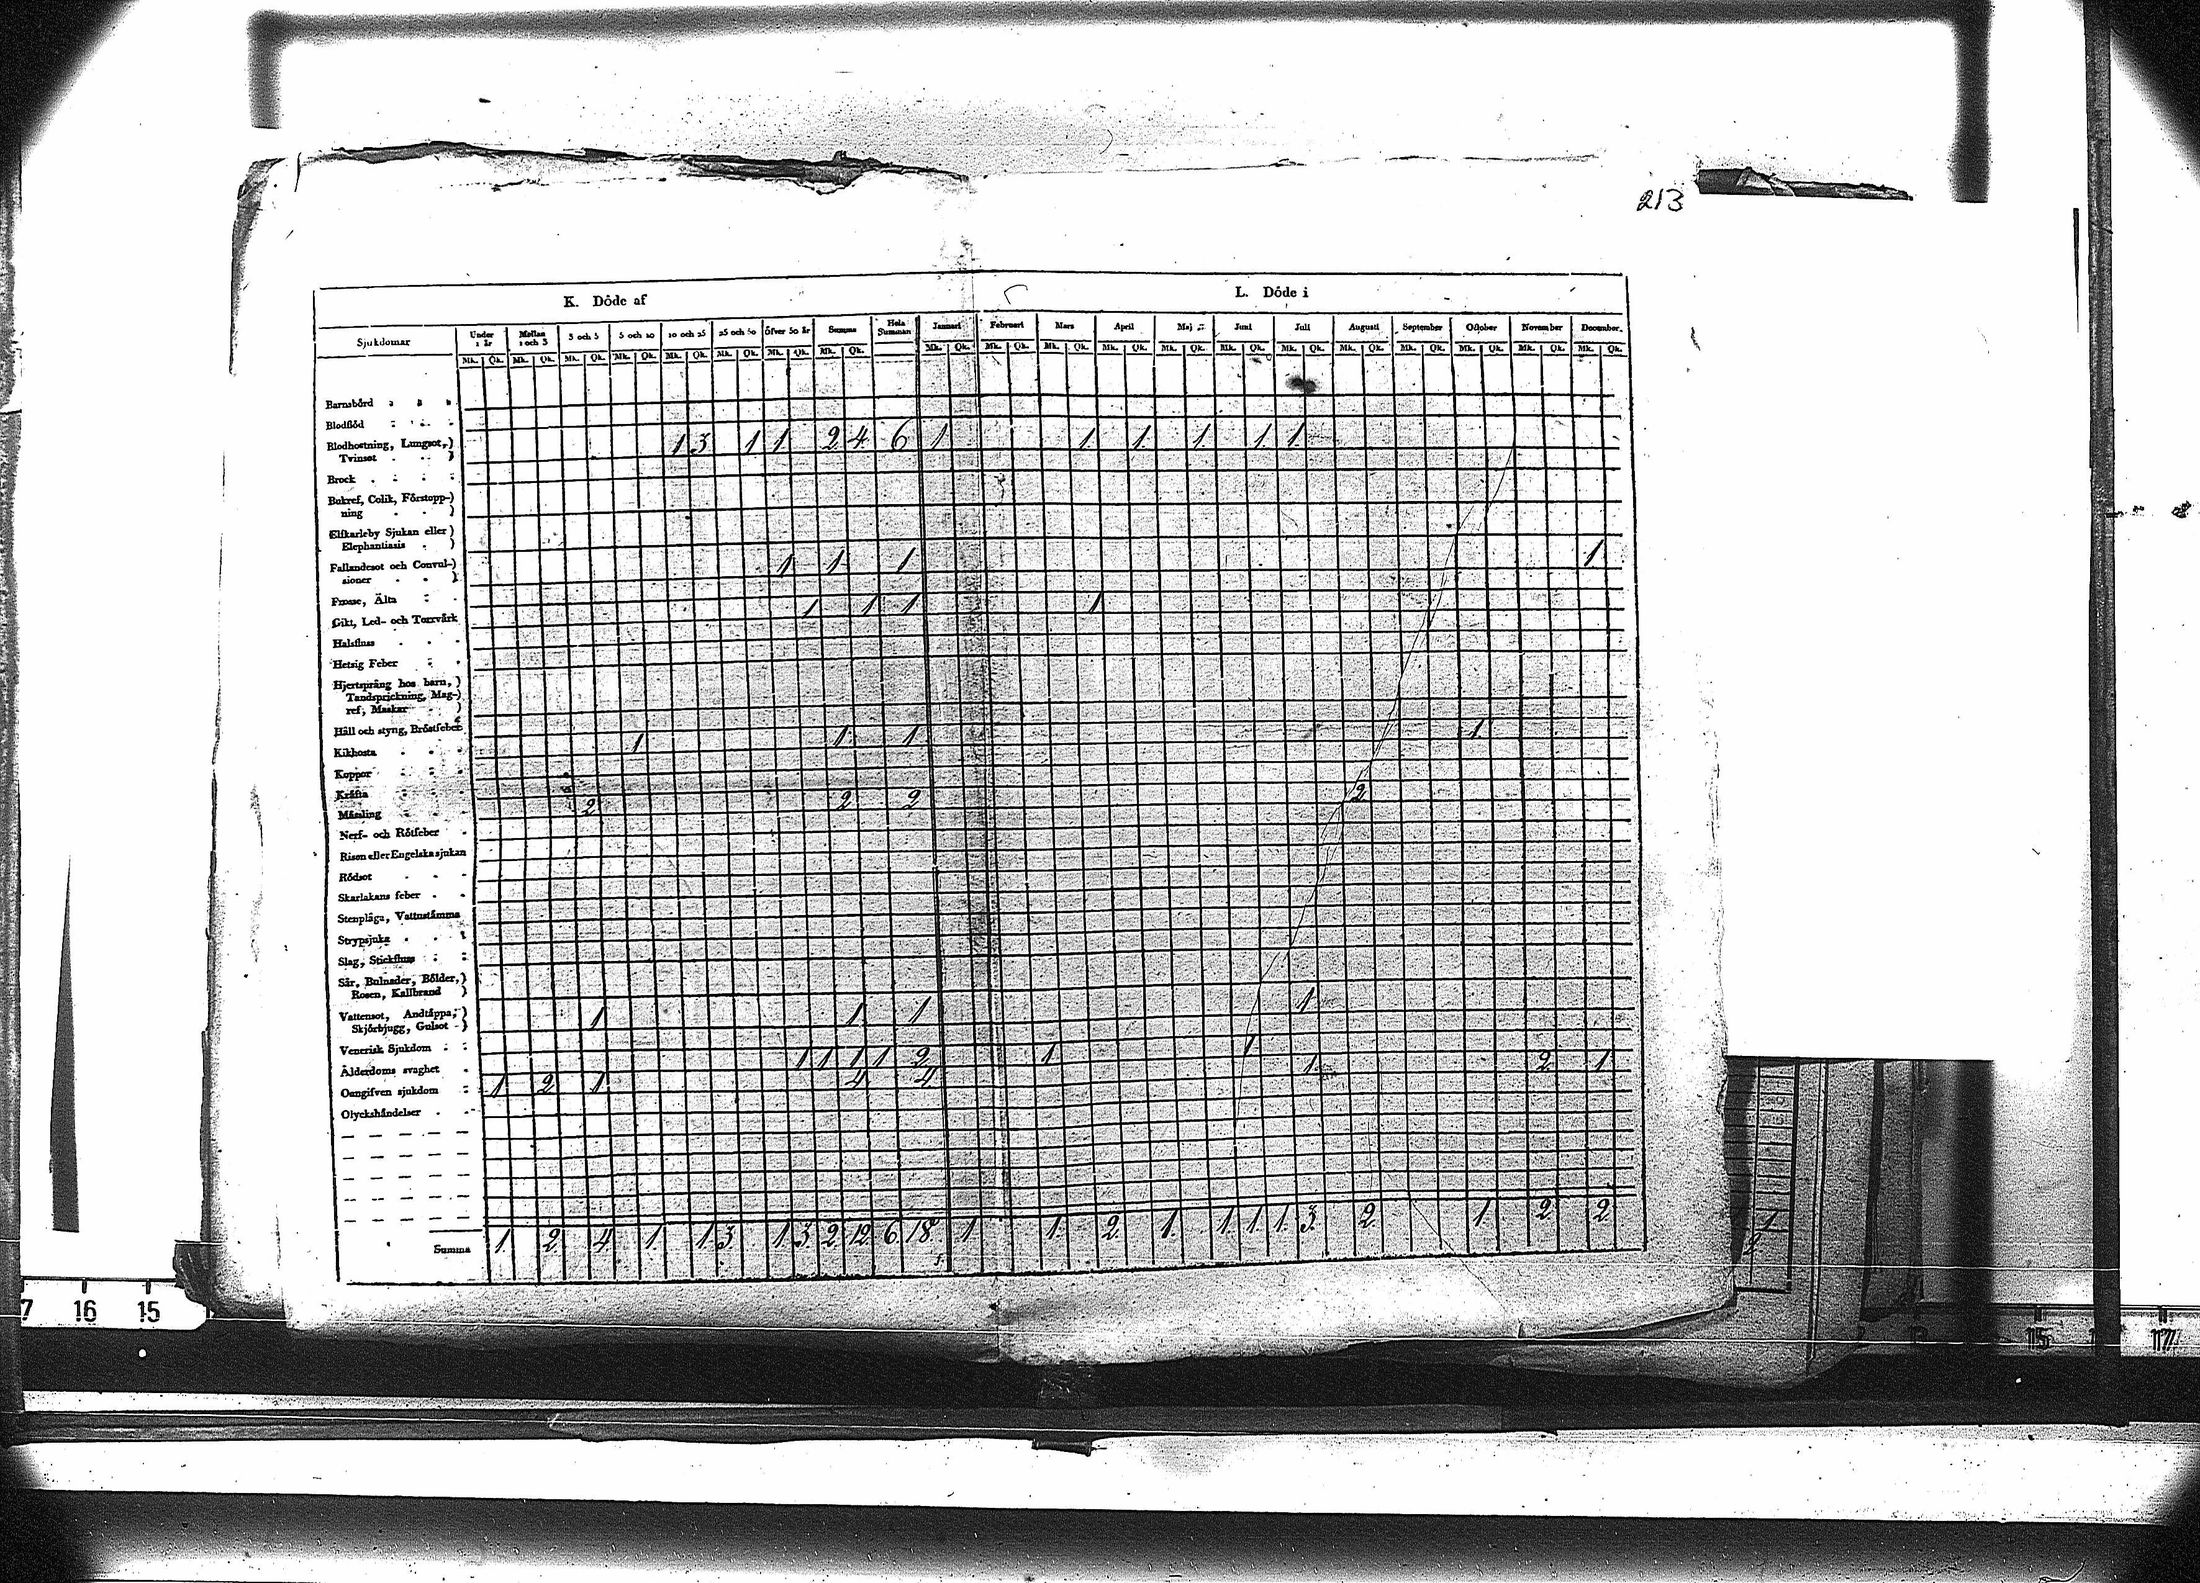 213
K. Döde af L. Döde i
Sjukdomar Under 1 år Mellan 1 och 3 3 och 5 5 och 10 10 och 25 25 och 50 öfver 50 år Summa Hela Summan Januari Februari Mars April Maj Juni Juli Augusti September October November December
Mk. Qk. Mk. Qk. Mk. Qk. Mk. Qk. Mk. Qk. Mk. Qk. Mk. Qk. Mk. Qk. Mk. Qk. Mk. Qk. Mk. Qk. Mk. Qk. Mk. Qk. Mk. Qk. Mk. Qk. Mk. Qk. Mk. Qk. Mk. Qk. Mk. Qk. Mk. Qk.
Barnsbörd
Blodflöd
Blodhostning, Lungsot, 1 3 1 1 2 4 6 1 1 1 1 1 1
Tvinsot
Brock
Bukref, Colik, Förstopp-
ning
Elfkarleby Sjukan eller
Elephantiasis
Fallandesot och Convul- 1 1 1 1
sioner
Frosse, Älta 1 1 1 1
Gikt, Led- och Torrvärk
Halsfluss
Hetsig Feber
Hjertsprång hos barn,
Tandsprickning, Mag-
ref, Maskar
Håll och styng, Bröstfeber 1 1 1 1
Kikhosta
Koppor
Kräfta 2 2 2 2
Mässling
Nerf- och Rötfeber
Risen eller Engelska sjukan
Rödsot
Skarlakans feber
Stenplåga, Vattnstämma
Strypsjuka
Slag, Stickfluss
Sår, Bulnader, Bölder,
Rosen, Kallbrand
Vattensot, Andtäppa, 1 1 1 1
Skjörbjugg, Gulsot
Venerisk Sjukdom
Ålderdoms svaghet 1 1 1 1 2 1 1
Oangifven sjukdom 1 2 1 4 4 1 2 1
Olyckshändelser
Summa 1 2 4 1 1 3 1 3 2 12 6 18 1 1 2 1 1 1 1 3 2 1 2 2
1
2
17 16 15
15 17